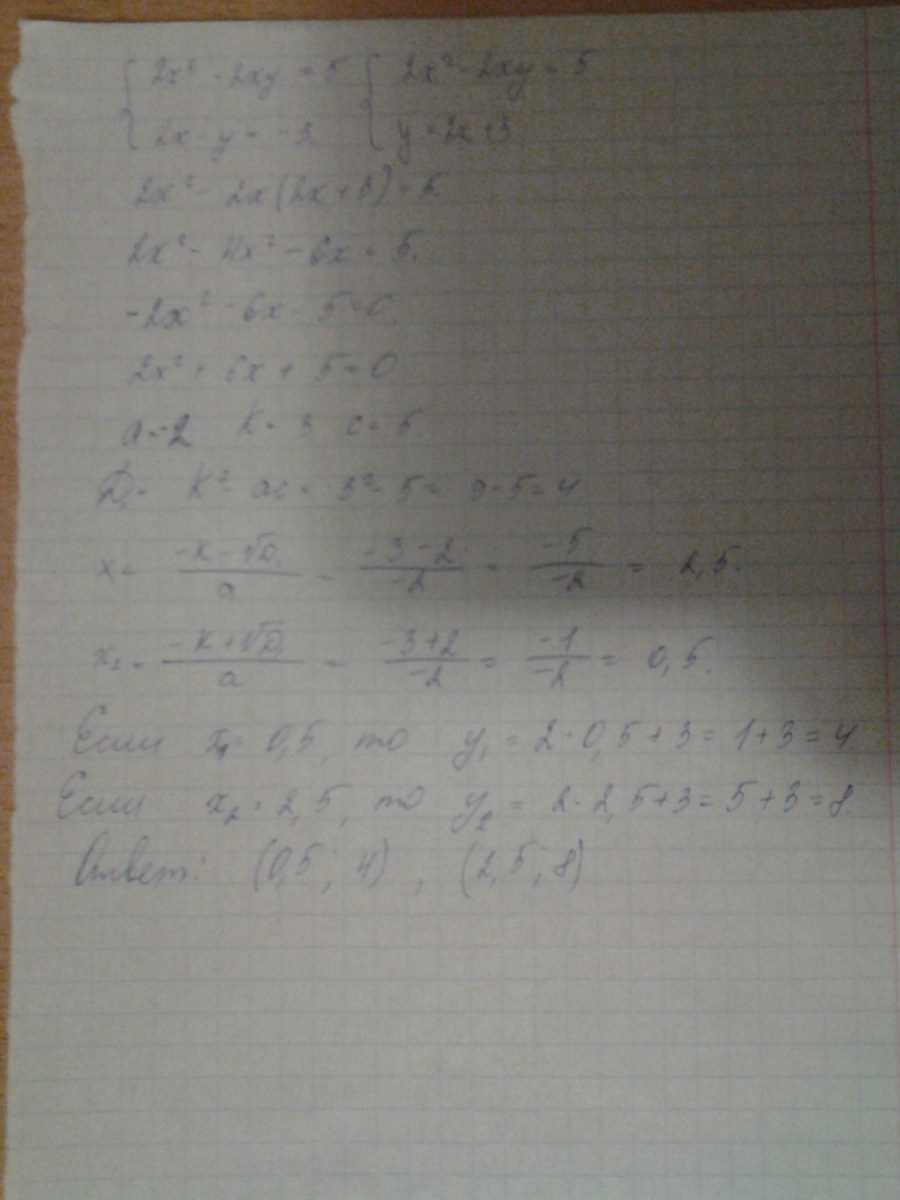 { 2x² - 2xy = 5 { 2x² - 2xy = 5
2x - y = -3 y = 2x + 3
2x² - 2x(2x+3) = 5
2x² - 4x² - 6x = 5.
-2x² - 6x - 5 = 0
2x² + 6x + 5 = 0
a = -2 k = 3 c = 5.
D₁ = k² - ac = 3² - 5 = 9 - 5 = 4
x = (-k - √D₁)/a = (-3 - 2)/-2 = -5/-2 = 2,5.
x₂ = (-k + √D₁)/a = (-3 + 2)/-2 = -1/-2 = 0,5.
Если x₁ = 0,5, то y₁ = 2·0,5 + 3 = 1 + 3 = 4
Если x₂ = 2,5, то y₂ = 2·2,5 + 3 = 5 + 3 = 8.
Ответ: (0,5; 4), (2,5; 8)